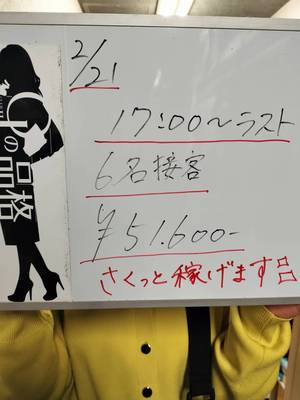 2/21
17:00〜ラスト
6名接客
¥51.600-
さくっと稼げます
の品格